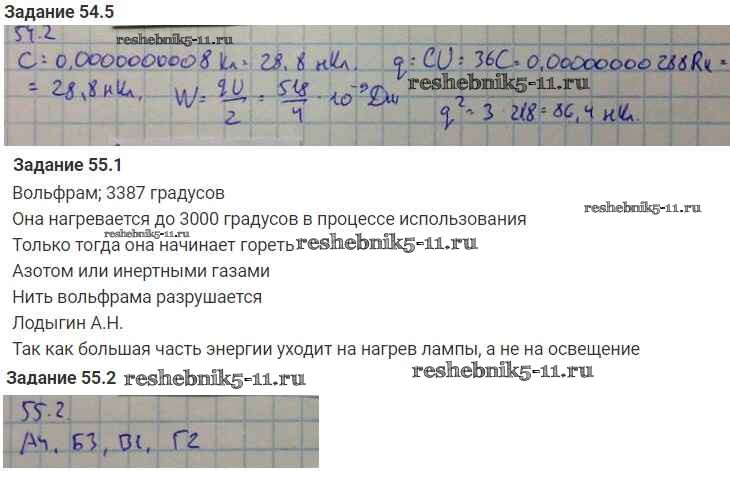 Задание 54.5
54.2
reshebnik5-11.ru
C = 0,0000000008 Кл = 28,8 нКл. q = CU = 36C = 0,00000000288Кл =
= 28,8 нКл. W = qU/2 = 518/4 · 10⁻⁹ Дж
reshebnik5-11.ru
q² = 3 · 218 = 86,4 нКл.
Задание 55.1
Вольфрам; 3387 градусов
reshebnik5-11.ru
Она нагревается до 3000 градусов в процессе использования
reshebnik5-11.ru
Только тогда она начинает гореть reshebnik5-11.ru
Азотом или инертными газами
Нить вольфрама разрушается
Лодыгин А.Н.
Так как большая часть энергии уходит на нагрев лампы, а не на освещение
Задание 55.2 reshebnik5-11.ru
reshebnik5-11.ru
55.2.
А4, Б3, В1, Г2